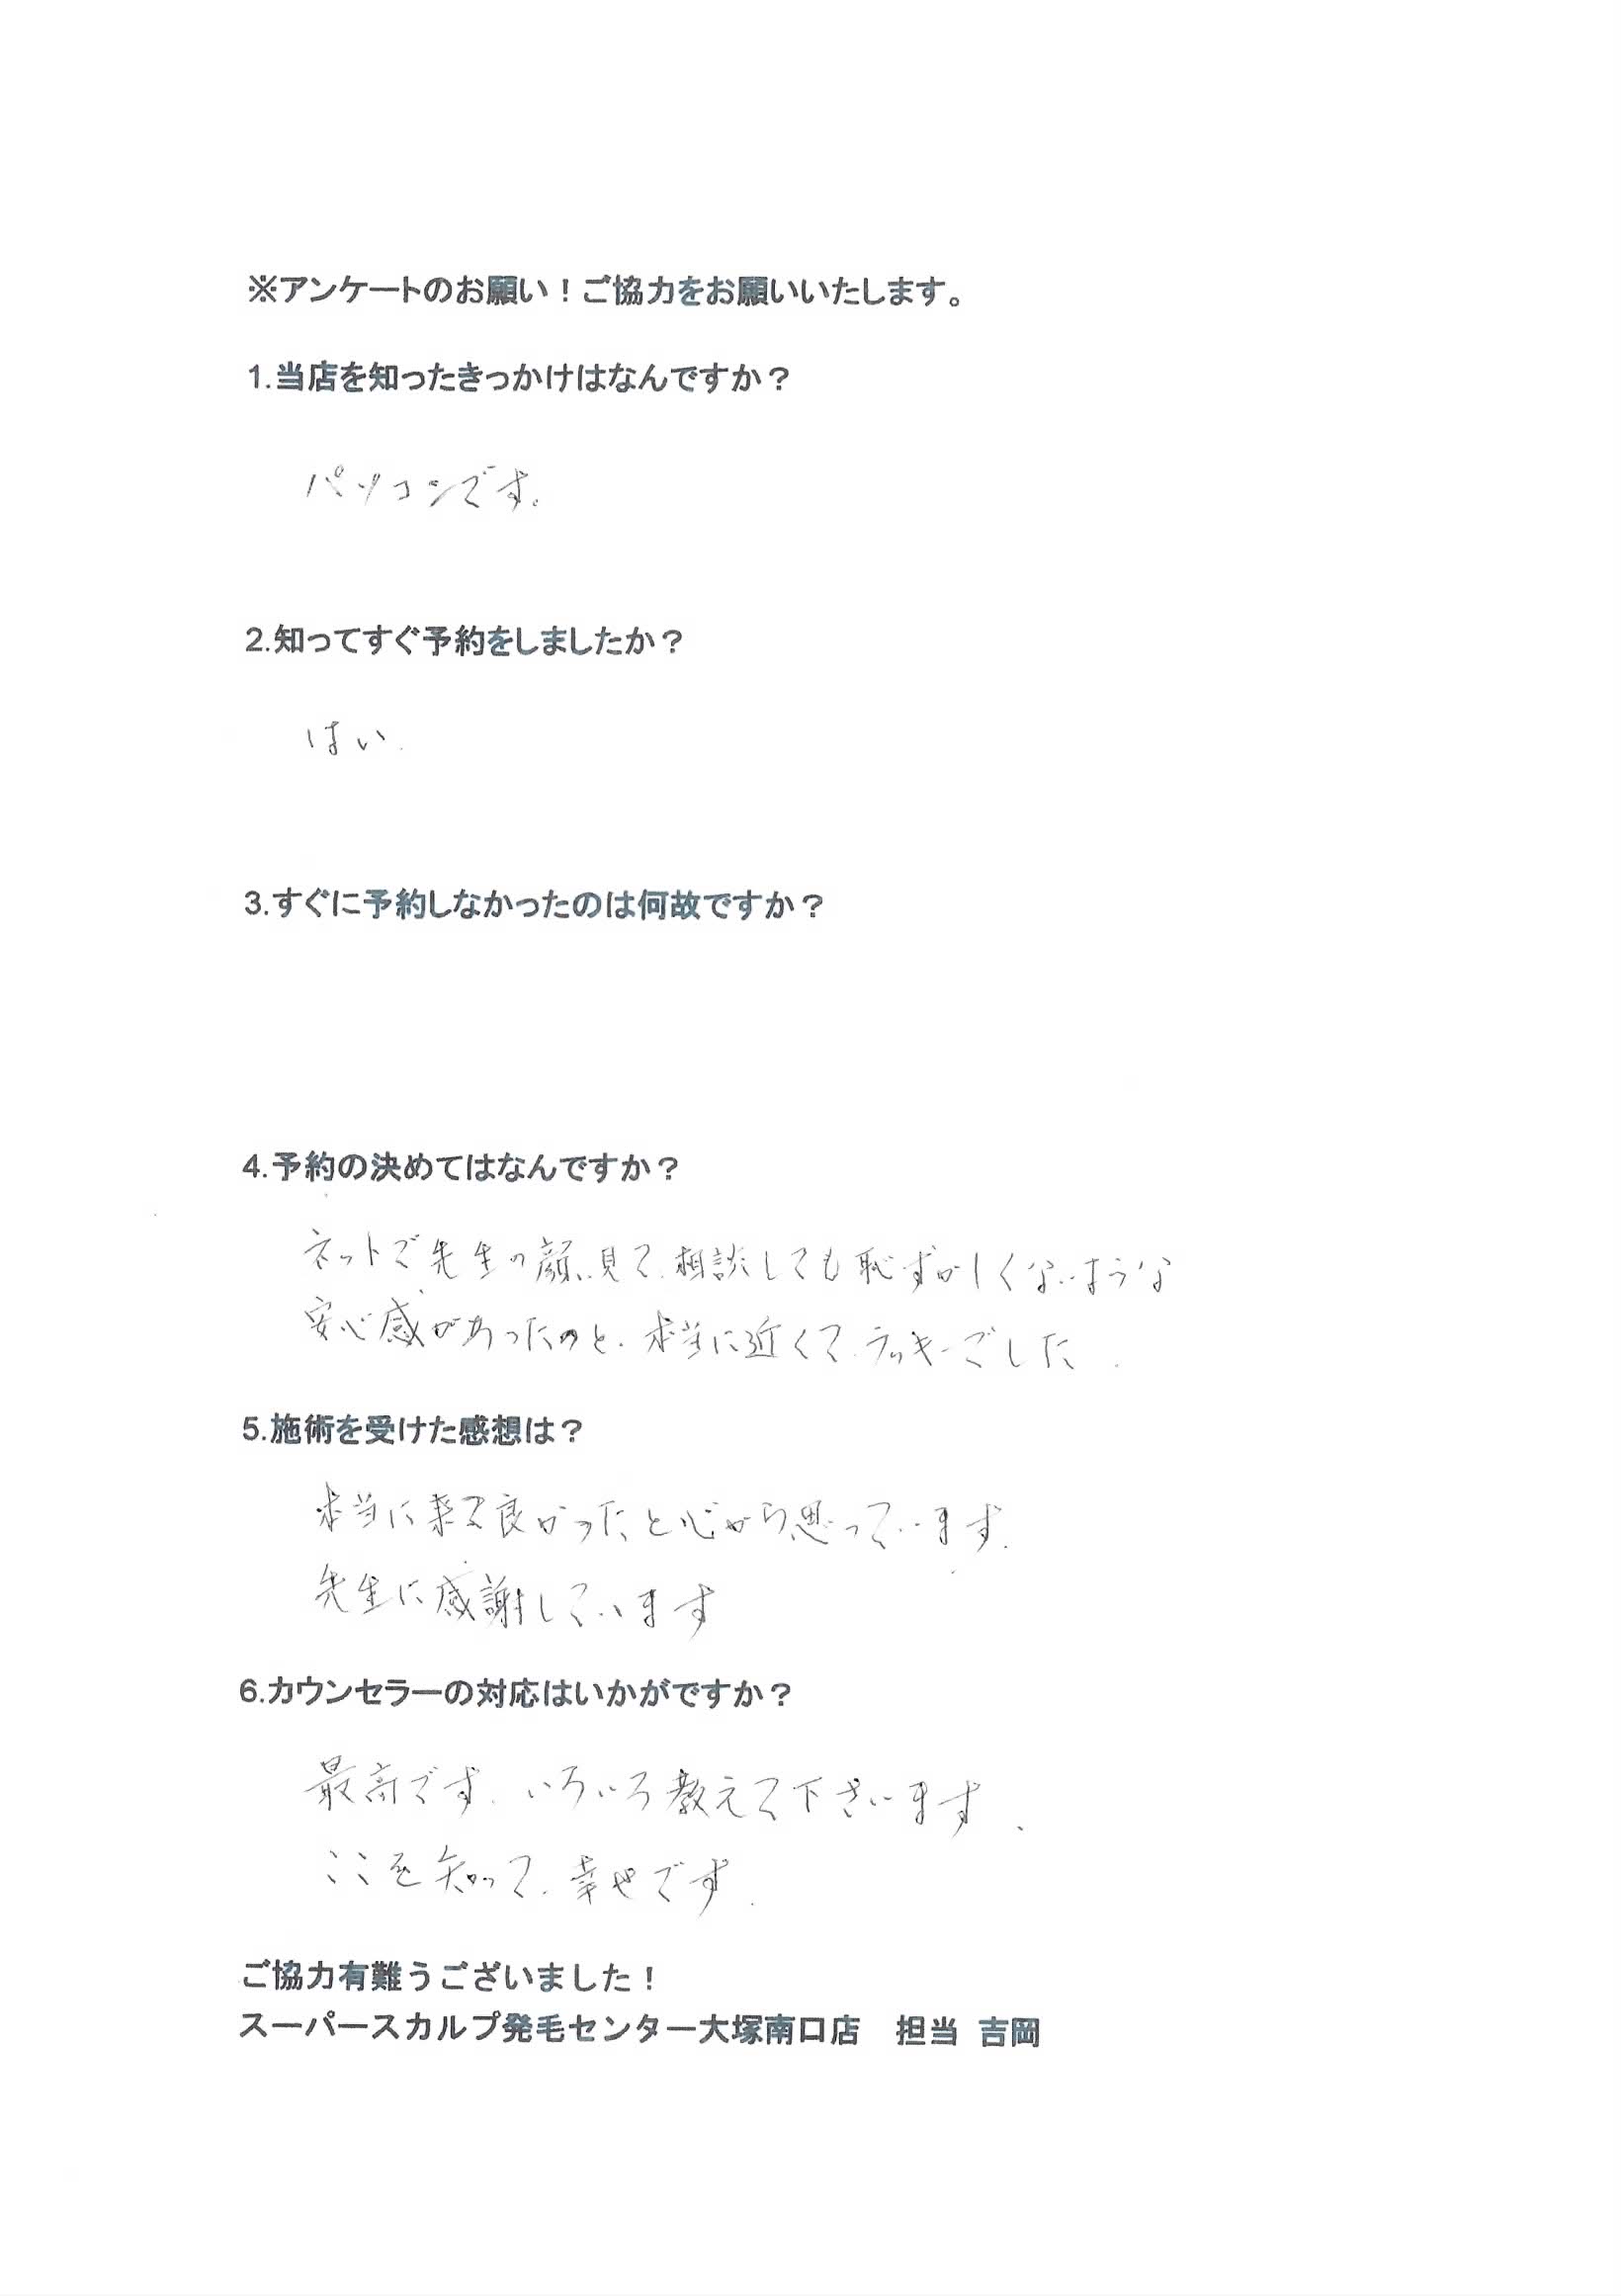 ※アンケートのお願い！ご協力をお願いいたします。
1.当店を知ったきっかけはなんですか？
パソコンです。
2.知ってすぐ予約をしましたか？
はい.
3.すぐに予約しなかったのは何故ですか？
4.予約の決めてはなんですか？
ネットで先生の顔、見て、相談しても恥ずかしくないような
安心感があったのと、本当に近くて、ラッキーでした.
5.施術を受けた感想は？
本当に来て良かったと心から思っています.
先生に感謝しています
6.カウンセラーの対応はいかがですか？
最高です. いろいろ教えて下さいます.
ここを知って、幸せです.
ご協力有難うございました！
スーパースカルプ発毛センター大塚南口店　担当 吉岡